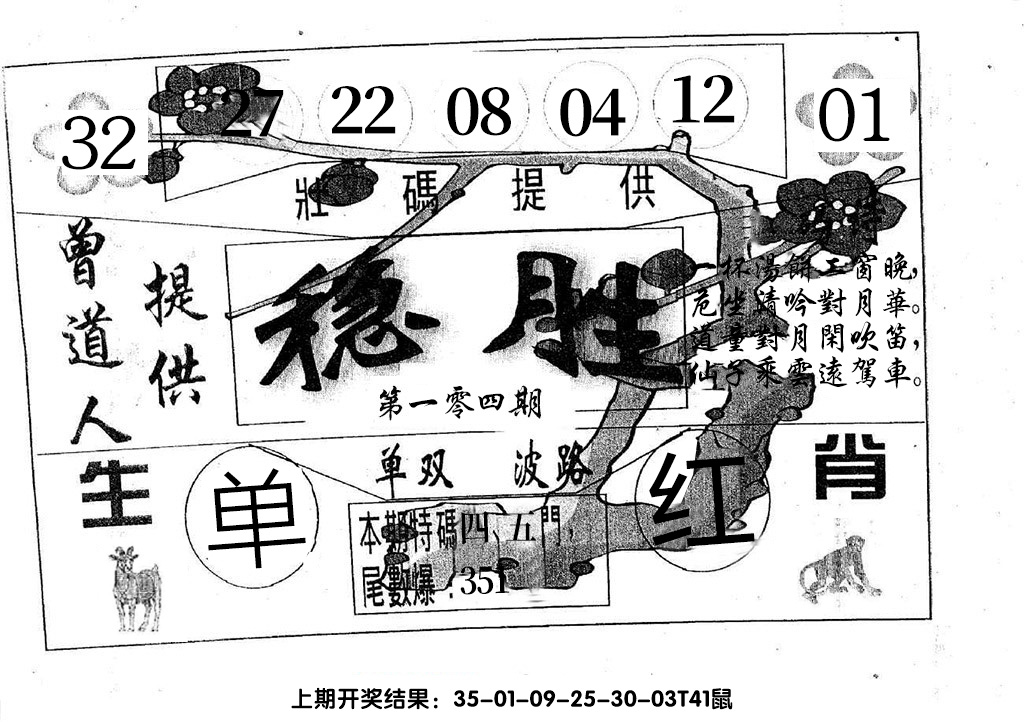 32 27 22 08 04 12 01
壯碼提供
特
曾道人
提供
稳胜
第一零四期
一杯湯餅工窗晚，
危坐請吟對月華。
道童對月閑吹笛，
仙子乘雲遠駕車。
单双 波路
生肖
单
红
本期特碼四、五門，
尾數爆：351
上期开奖结果：35-01-09-25-30-03T41鼠